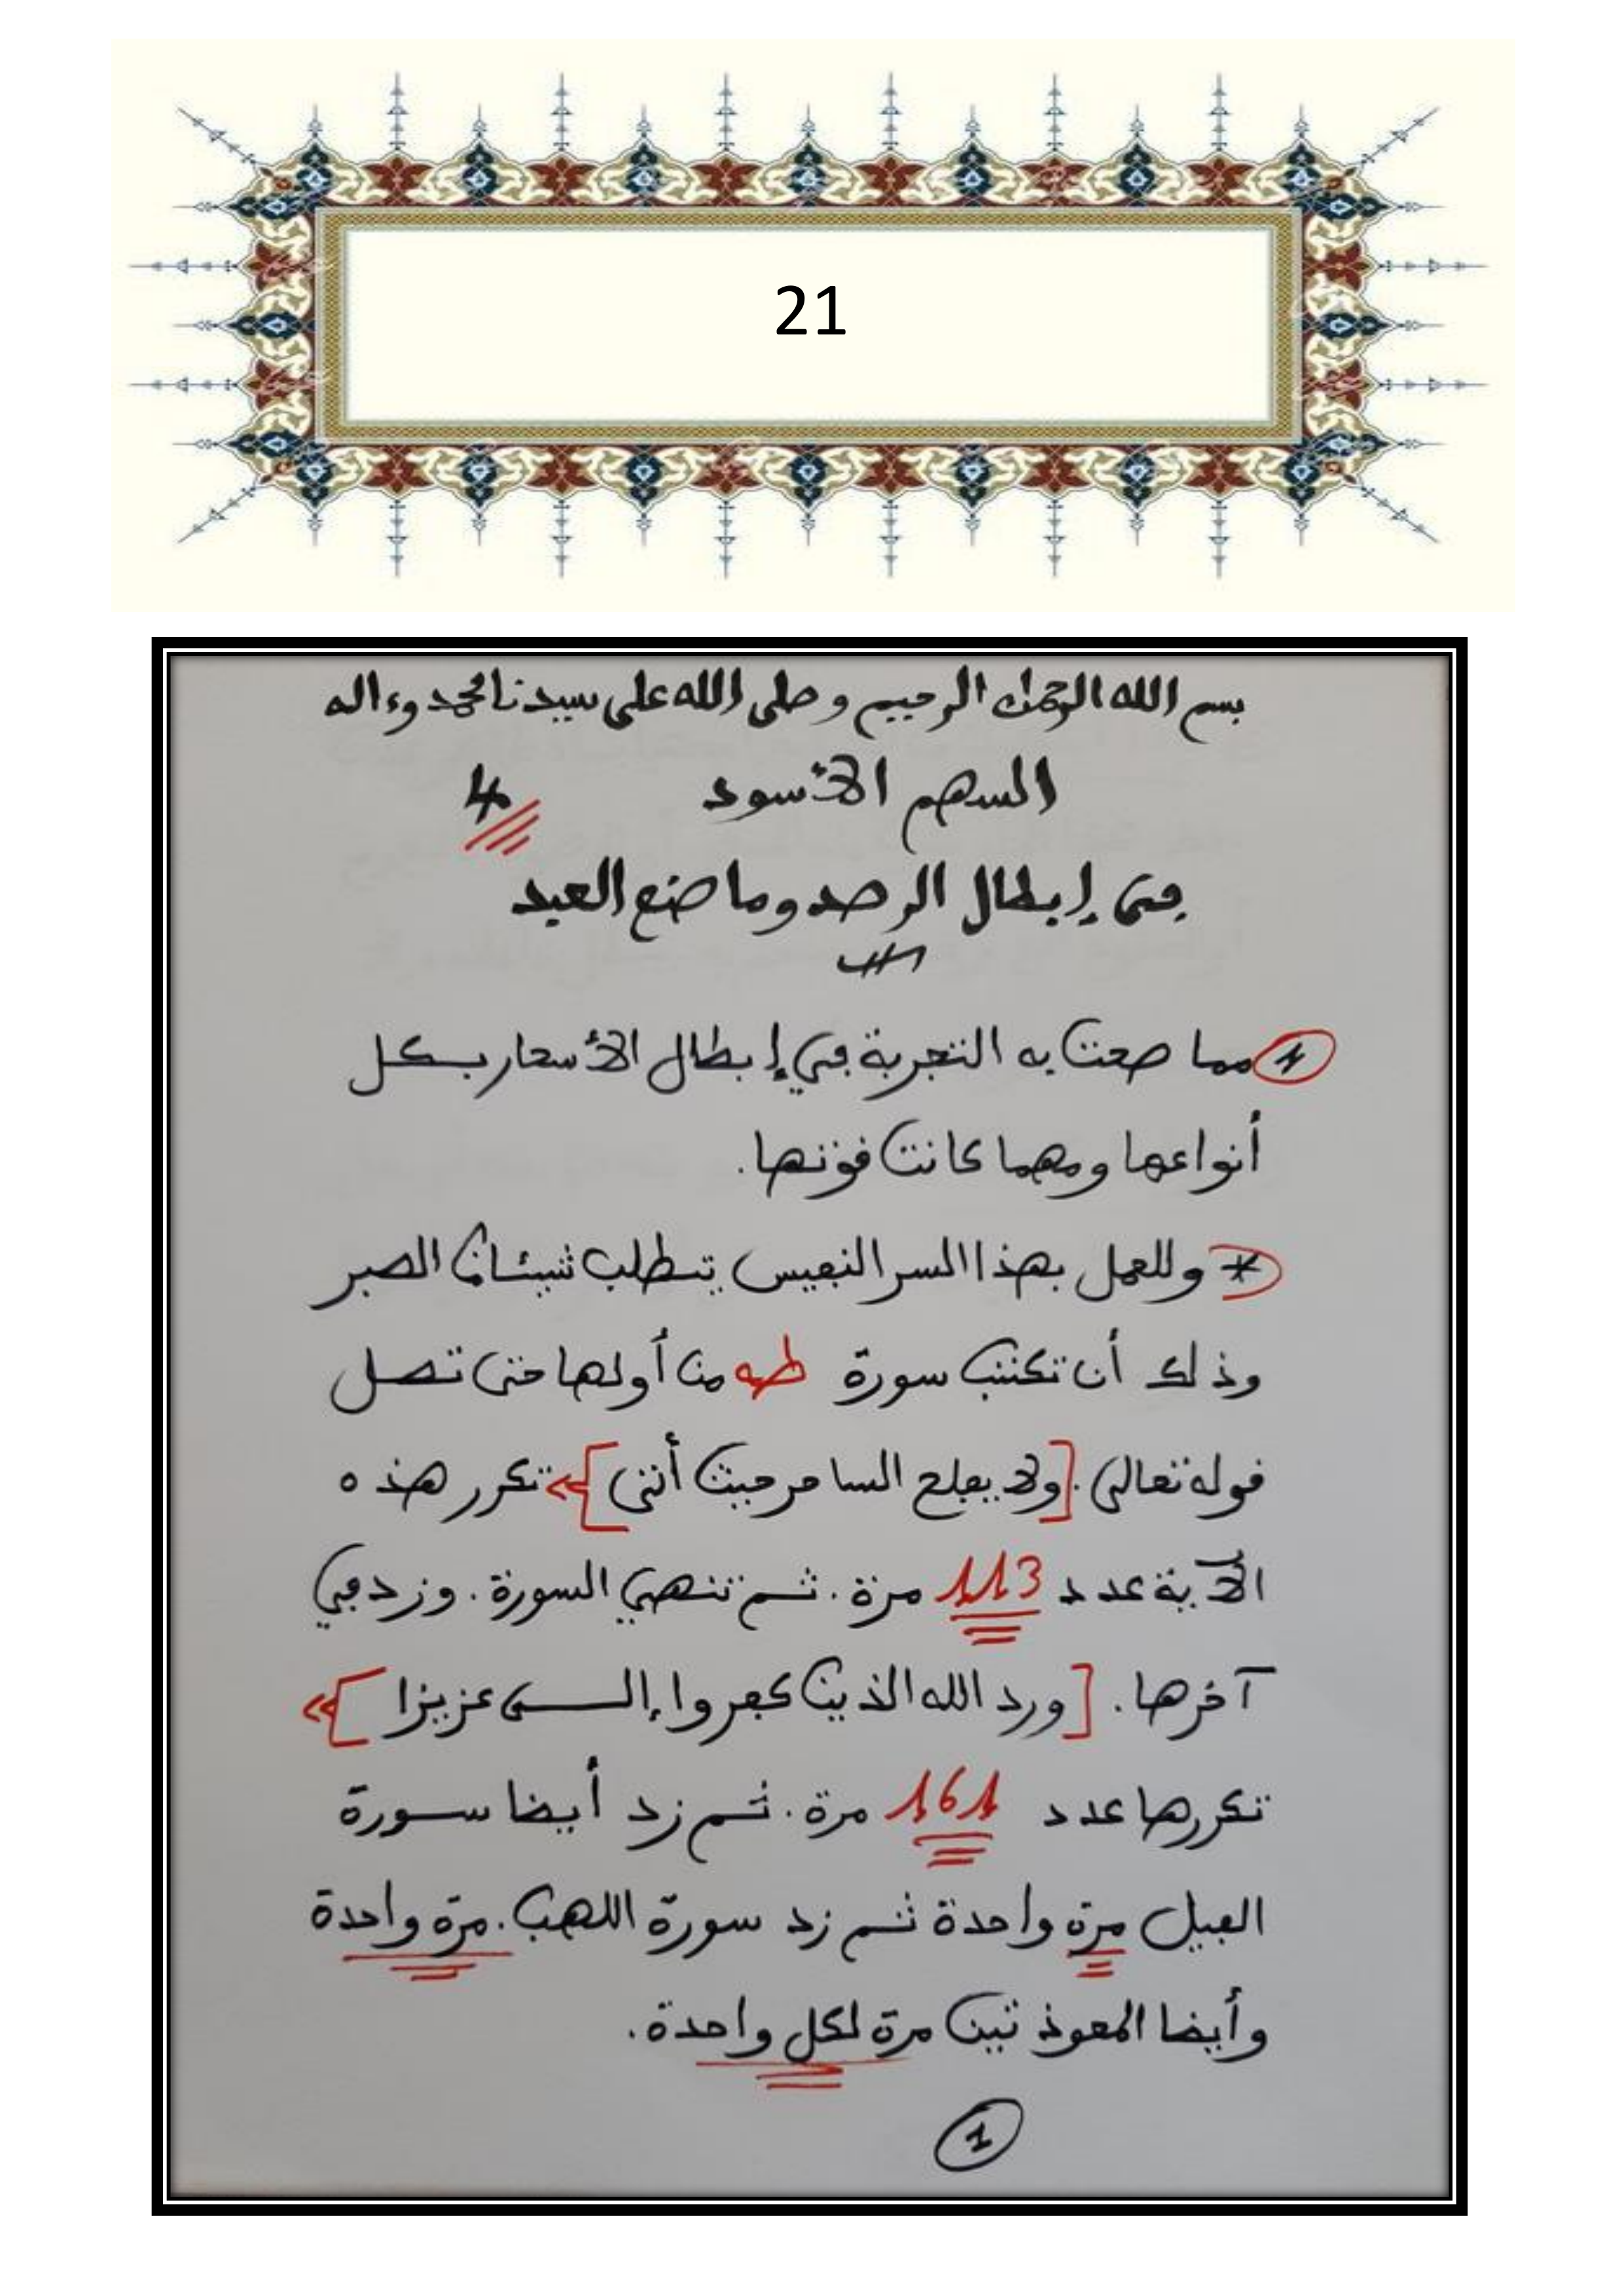 21
بسم الله الرحمان الرحيم وصلى الله على سيدنا محمد وءاله
السهم الأسود 4
في إبطال الرصد وما صنع العبد
مما صحت به التجربة في إبطال الأسحار بكل
أنواعها ومهما كانت قوتها.
* وللعمل بهذا السر النفيس يتطلب شيئا من الصبر
وذلك أن تكتب سورة طه من أولها حتى تصل
قوله تعالى. [ولا يفلح الساحر حيث أتى] تكرر هذه
الآية عدد 113 مرة. ثم تنهي السورة. وزد في
آخرها. [ورد الله الذين كفروا إلـــى عزيزا]
تكررها عدد 161 مرة. ثم زد أيضا سورة
الفيل مرة واحدة ثم زد سورة اللهب. مرة واحدة
وأيضا المعوذتين مرة لكل واحدة.
1